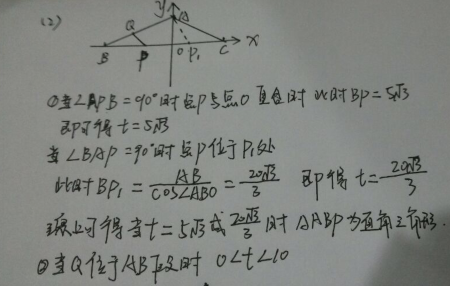 (2)
y A
Q
B P O P₁ C x
①当∠APB=90°时 点P与点O重合时 此时BP=5√3
即可得 t=5√3
当∠BAP=90°时点P位于P₁处
此时BP₁=AB/COS∠ABO=20√3/3 即得 t=20√3/3
综上可得当t=5√3或20√3/3时 △ABP为直角三角形.
②当Q位于AB段时 0<t<10